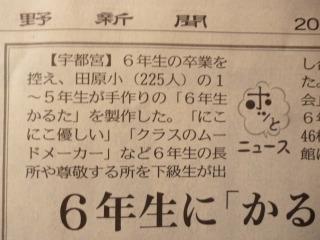 野 新 聞
20
【宇都宮】６年生の卒業を
控え、田原小（225人）の１
〜５年生が手作りの「６年生
かるた」を製作した。「にこ
にこ優しい」「クラスのムー
ドメーカー」など６年生の長
所や尊敬する所を下級生が出
ホッと
ニュース
し合
会」
６年
46枚
館に
６年生に「かる